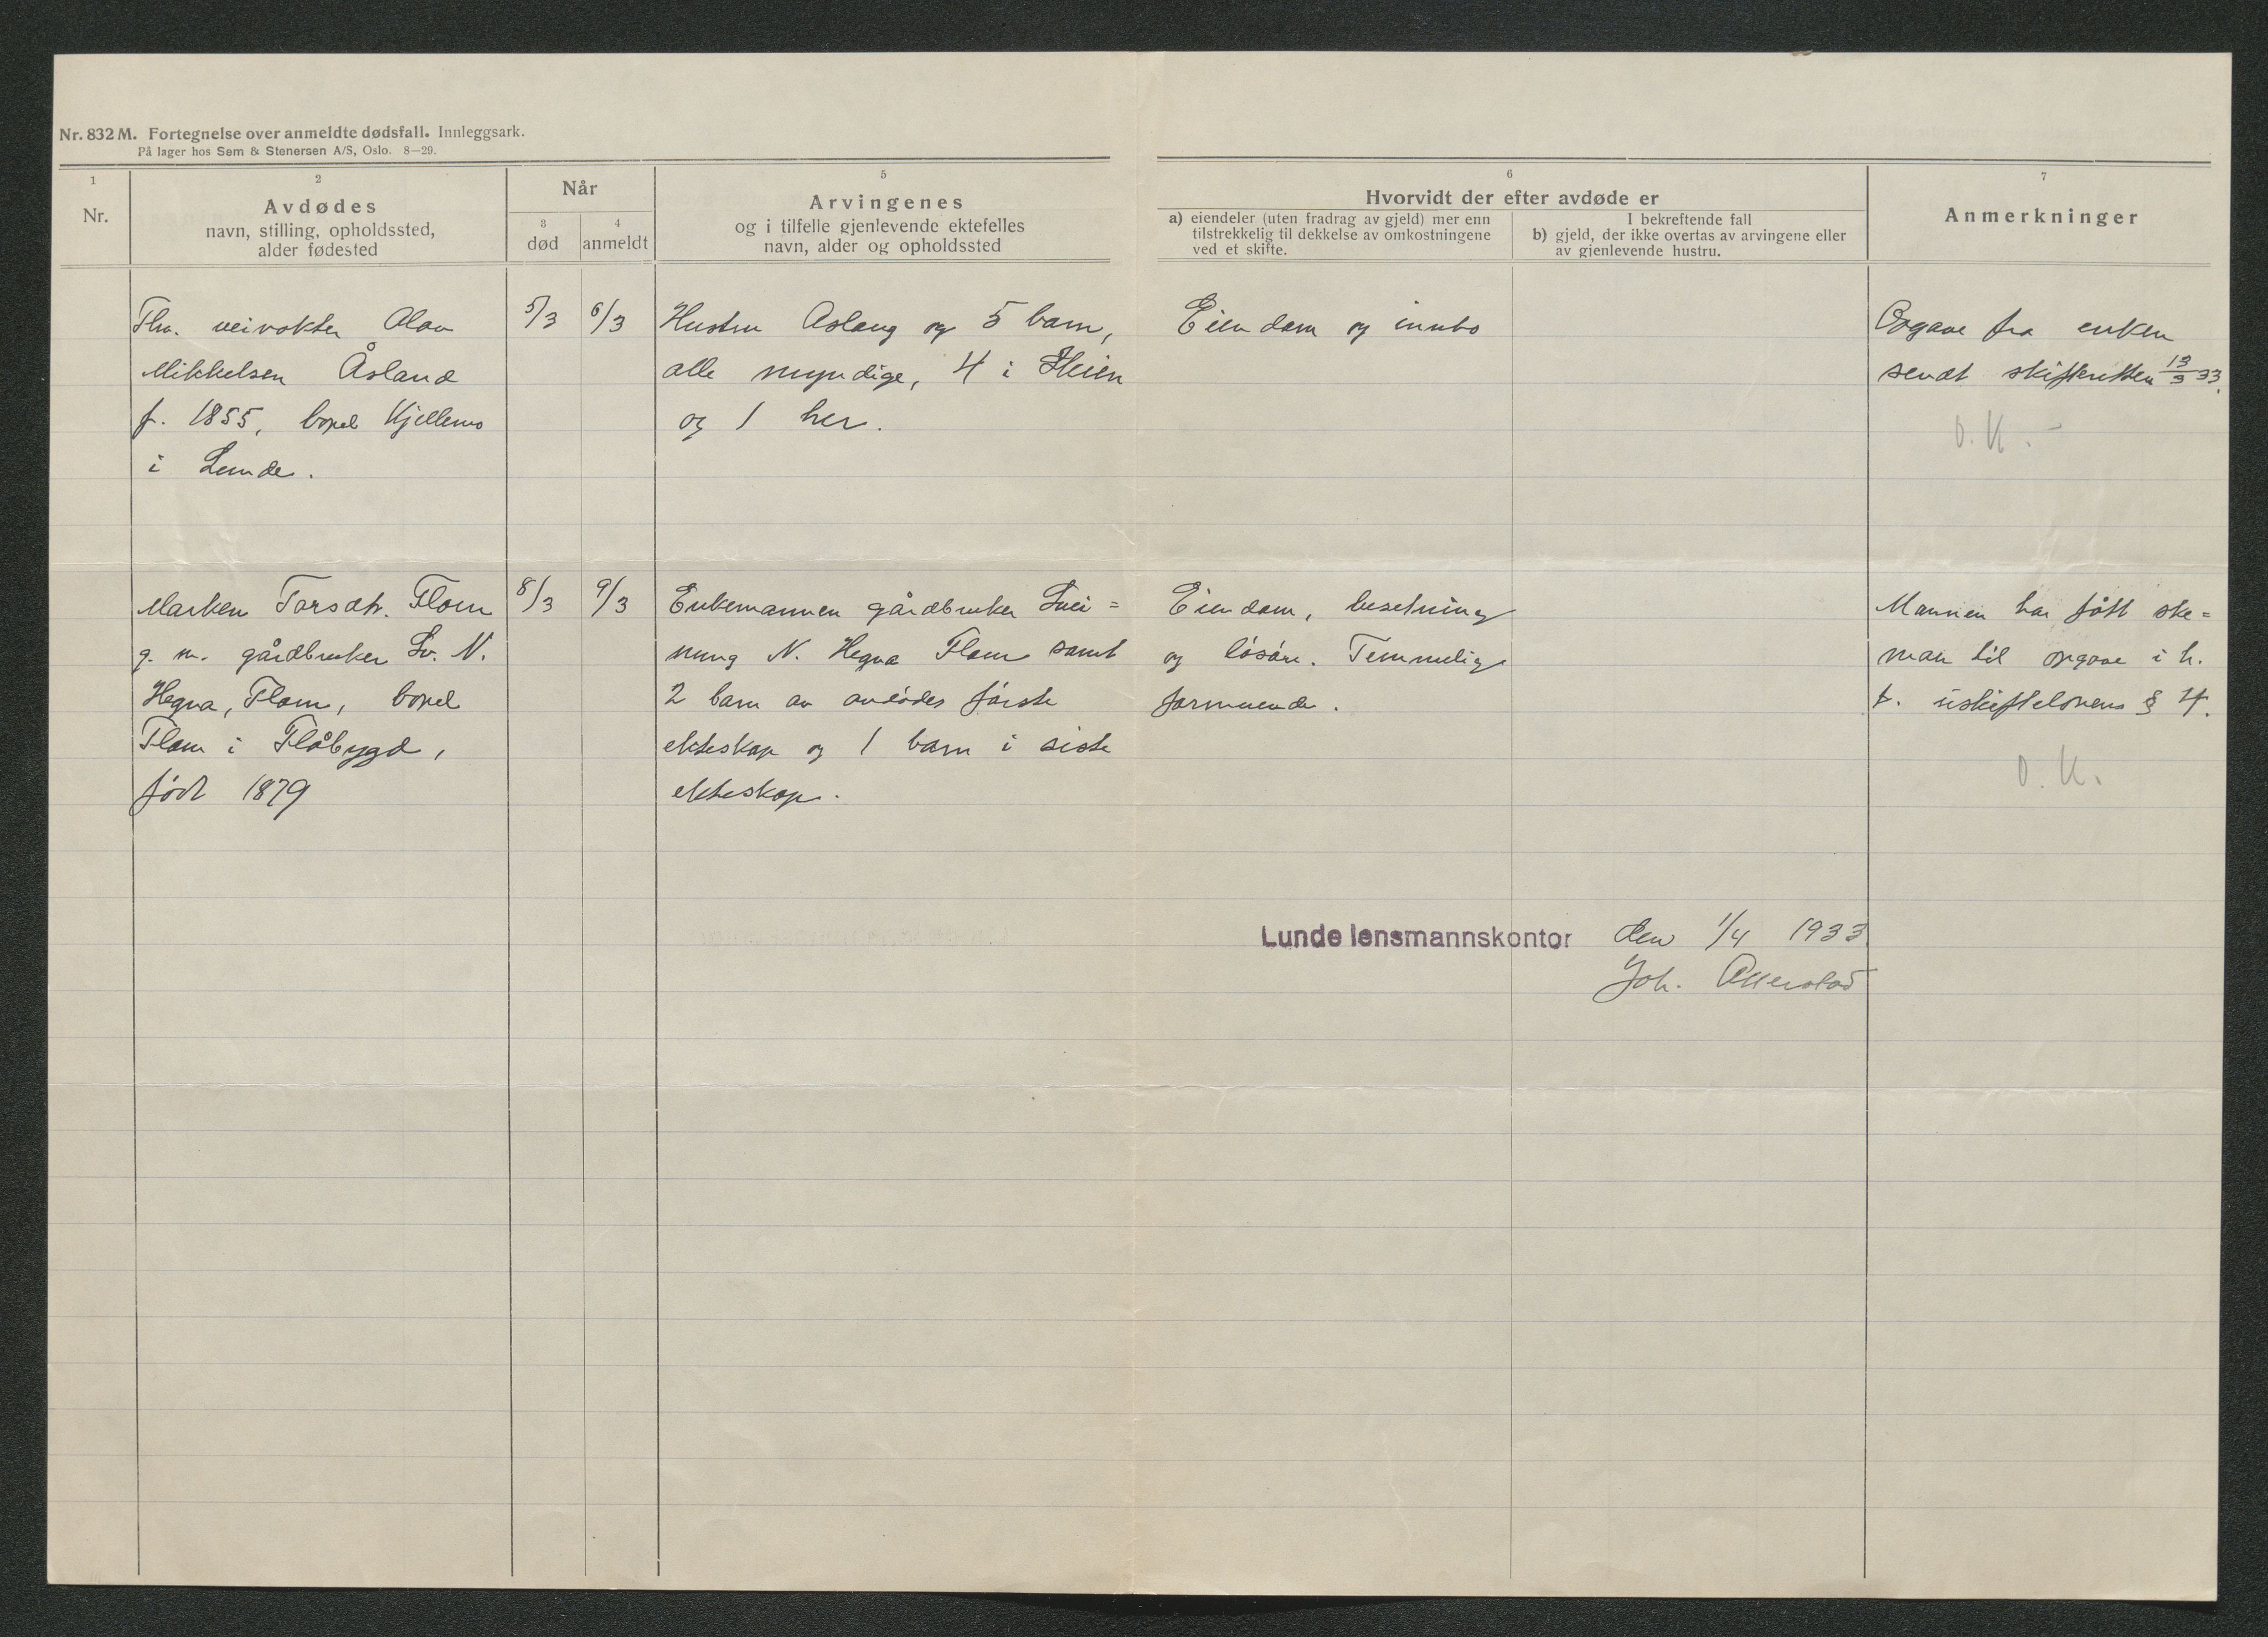 Nr. 832 M. Fortegnelse over anmeldte dødsfall. Innleggsark.
På lager hos Sem & Stenersen A/S, Oslo. 8—29.
1
Nr.
2
Avdødes
navn, stilling, opholdssted,
alder fødested
Når
3
død
4
anmeldt
5
Arvingenes
og i tilfelle gjenlevende ektefelles
navn, alder og opholdssted
6
Hvorvidt der efter avdøde er
a) eiendeler (uten fradrag av gjeld) mer enn
tilstrekkelig til dekkelse av omkostningene
ved et skifte.
I bekreftende fall
b) gjeld, der ikke overtas av arvingene eller
av gjenlevende hustru.
7
Anmerkninger
Fhv. veivokter Olav
Mikkelsen Åsland
f. 1855, bopel
i Lunde.
5/3
6/3
Hustru Aslaug og 5 barn,
alle myndige, 4 i Heien
og 1 her.
Eiendom og innbo
Opgave fra enken
sendt skifteretten 13/3 33.
O.K.-
Marken Torsdtr. Flom
g. m. gårdbruker Sv. N.
Hegna, Flom, bopel
Flom i Flåbygd,
født 1879
8/3
9/3
Enkemannen gårdbruker Svei=
nung N. Hegna Flom samt
2 barn av avdødes første
ekteskap og 1 barn i siste
ekteskap.
Eiendom, besetning
og løsøre. Temmelig
formuende.
Mannen har fått ske=
ma til opgave i h.
t. uskiftelovens § 4.
O.K.
Lunde lensmannskontor den 1/4 1933
Joh.